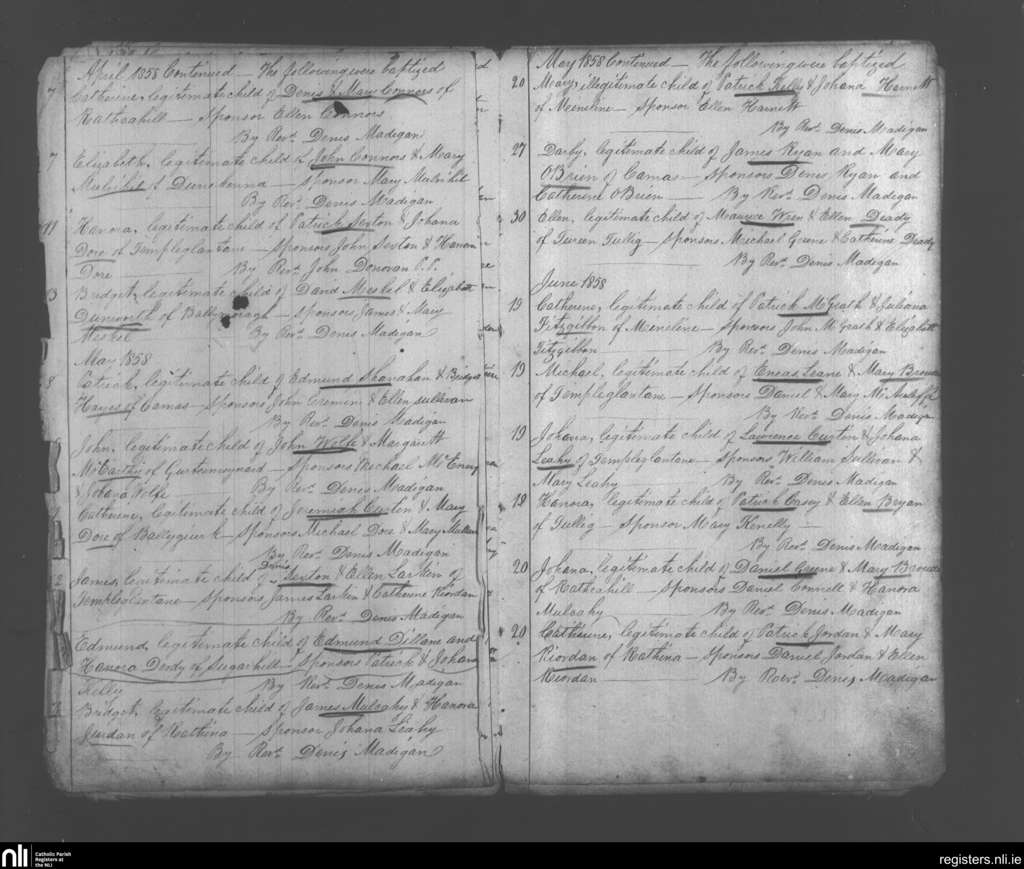 April 1858 Continued — The following were baptized
7 Catherine, legitimate child of Denis & Mary Connors of
Rathcahill — Sponsor Ellen Connors
By Revd. Denis Madigan
7 Elizabeth, legitimate child of John Connors & Mary
Mulrihil of Dunekenna — Sponsor Mary Mulrihil
By Revd. Denis Madigan
11 Hanora, legitimate child of Patrick Sexton & Johana
Dore of Templeglantane — Sponsors John Sexton & Hanora
Dore By Revd. John Donovan P.P.
13 Bridget, legitimate child of David Meskel & Elizabeth
Dunworth of — Sponsors James & Mary
Meskel By Revd. Denis Madigan
May 1858
8 Patrick, legitimate child of Edmund Shanahan & Bridget
Hayes of Camas — Sponsors John Cremin & Ellen Sullivan
By Revd. Denis Madigan
John, legitimate child of John Wolfe & Margarett
McCarthy of — Sponsors Michael McEniry
& Johana Wolfe By Revd. Denis Madigan
Catherine, legitimate child of Jeremiah Curtin & Mary
Dore of — Sponsors Michael Dore & Mary
By Revd. Denis Madigan
12 James, legitimate child of Denis Sexton & Ellen Larkin of
Templeglantane — Sponsors James Larkin & Catherine Riordan
By Revd. Denis Madigan
Edmund, legitimate child of Edmund Dillane and
Hanora Deedy of Sugarhill — Sponsors Patrick & Johana
Kelly By Revd. Denis Madigan
Bridget, legitimate child of James Mulcahy & Hanora
Jurdan of Rathina — Sponsor Johana Leahy
By Revd. Denis Madigan
May 1858 Continued — The following were baptized
20 Mary, illegitimate child of Patrick Kelly & Johana Harnett
of Meneline — Sponsor Ellen Harnett
By Revd. Denis Madigan
27 Darby, legitimate child of James Ryan and Mary
O'Brien of Camas — Sponsors Denis Ryan and
Catherine O'Brien — By Revd. Denis Madigan
30 Ellen, legitimate child of Maurice Wren & Ellen Deady
of Tureen Tullig — Sponsors Michael Greene & Catherine Deady
By Revd. Denis Madigan
June 1858
19 Catherine, legitimate child of Patrick McGrath & Juliana
Fitzgibbon of Meneline — Sponsors John McGrath & Elizabeth
Fitzgibbon — By Revd. Denis Madigan
19 Michael, legitimate child of Eneas Leane & Mary
of Templeglantane — Sponsors Daniel & Mary McAuliffe
By Revd. Denis Madigan
19 Johana, legitimate child of Lawrence Curtin & Johana
Leahy of Templeglantane — Sponsors William Sullivan &
Mary Leahy By Revd. Denis Madigan
19 Hanora, legitimate child of Patrick & Ellen Bryan
of Tullig — Sponsor Mary Kenelly —
By Revd. Denis Madigan
20 Johana, legitimate child of Daniel Greene & Mary
of Rathcahill — Sponsors Daniel Connell & Hanora
Mulcahy — By Revd. Denis Madigan
20 Catherine, legitimate child of Patrick Jordan & Mary
Riordan of Rathina — Sponsors Daniel Jordan & Ellen
Riordan — By Revd. Denis Madigan
nli
Catholic Parish
Registers at
the NLI
registers.nli.ie